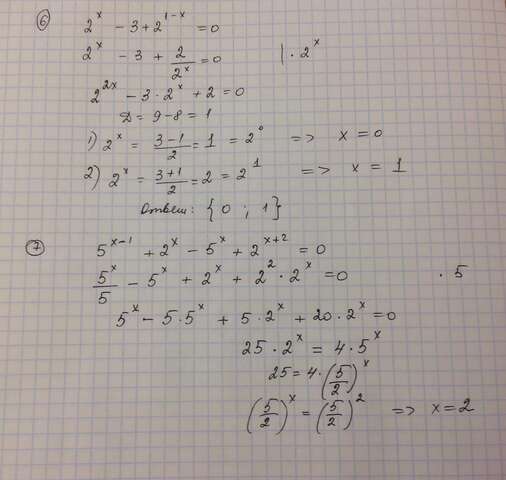 ⑥ 2^x - 3 + 2^{1-x} = 0
2^x - 3 + \frac{2}{2^x} = 0 | · 2^x
2^{2x} - 3 · 2^x + 2 = 0
Д = 9 - 8 = 1
1) 2^x = \frac{3-1}{2} = 1 = 2^0 => x = 0
2) 2^x = \frac{3+1}{2} = 2 = 2^1 => x = 1
Ответ: {0 ; 1}
⑦ 5^{x-1} + 2^x - 5^x + 2^{x+2} = 0
\frac{5^x}{5} - 5^x + 2^x + 2^2 · 2^x = 0 · 5
5^x - 5 · 5^x + 5 · 2^x + 20 · 2^x = 0
25 · 2^x = 4 · 5^x
25 = 4 · (\frac{5}{2})^x
(\frac{5}{2})^x = (\frac{5}{2})^2 => x = 2